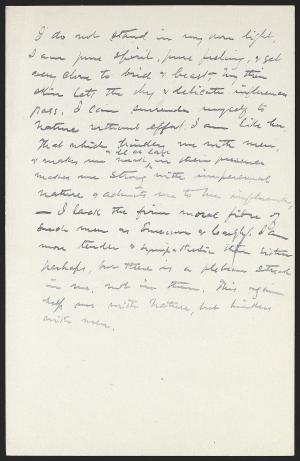 I do not stand in my own light.
I am pure spirit, pure feeling, & get
very close to bird & beast, in their
skin let the shy & delicate influences
pass. I can surrender myself to
nature without effort. I am like her.
That which hinders me with men,
& makes me weak & ill at ease in their presence
makes me strong with impersonal
nature & admits me to her influences.
— I lack the firm moral fibre of
such men as Emerson & Carlyle. I am
more tender & sympathetic than either
perhaps, but there is a plebeian streak
in me, not in them. This again
helps me with Nature, but hinders
with men.